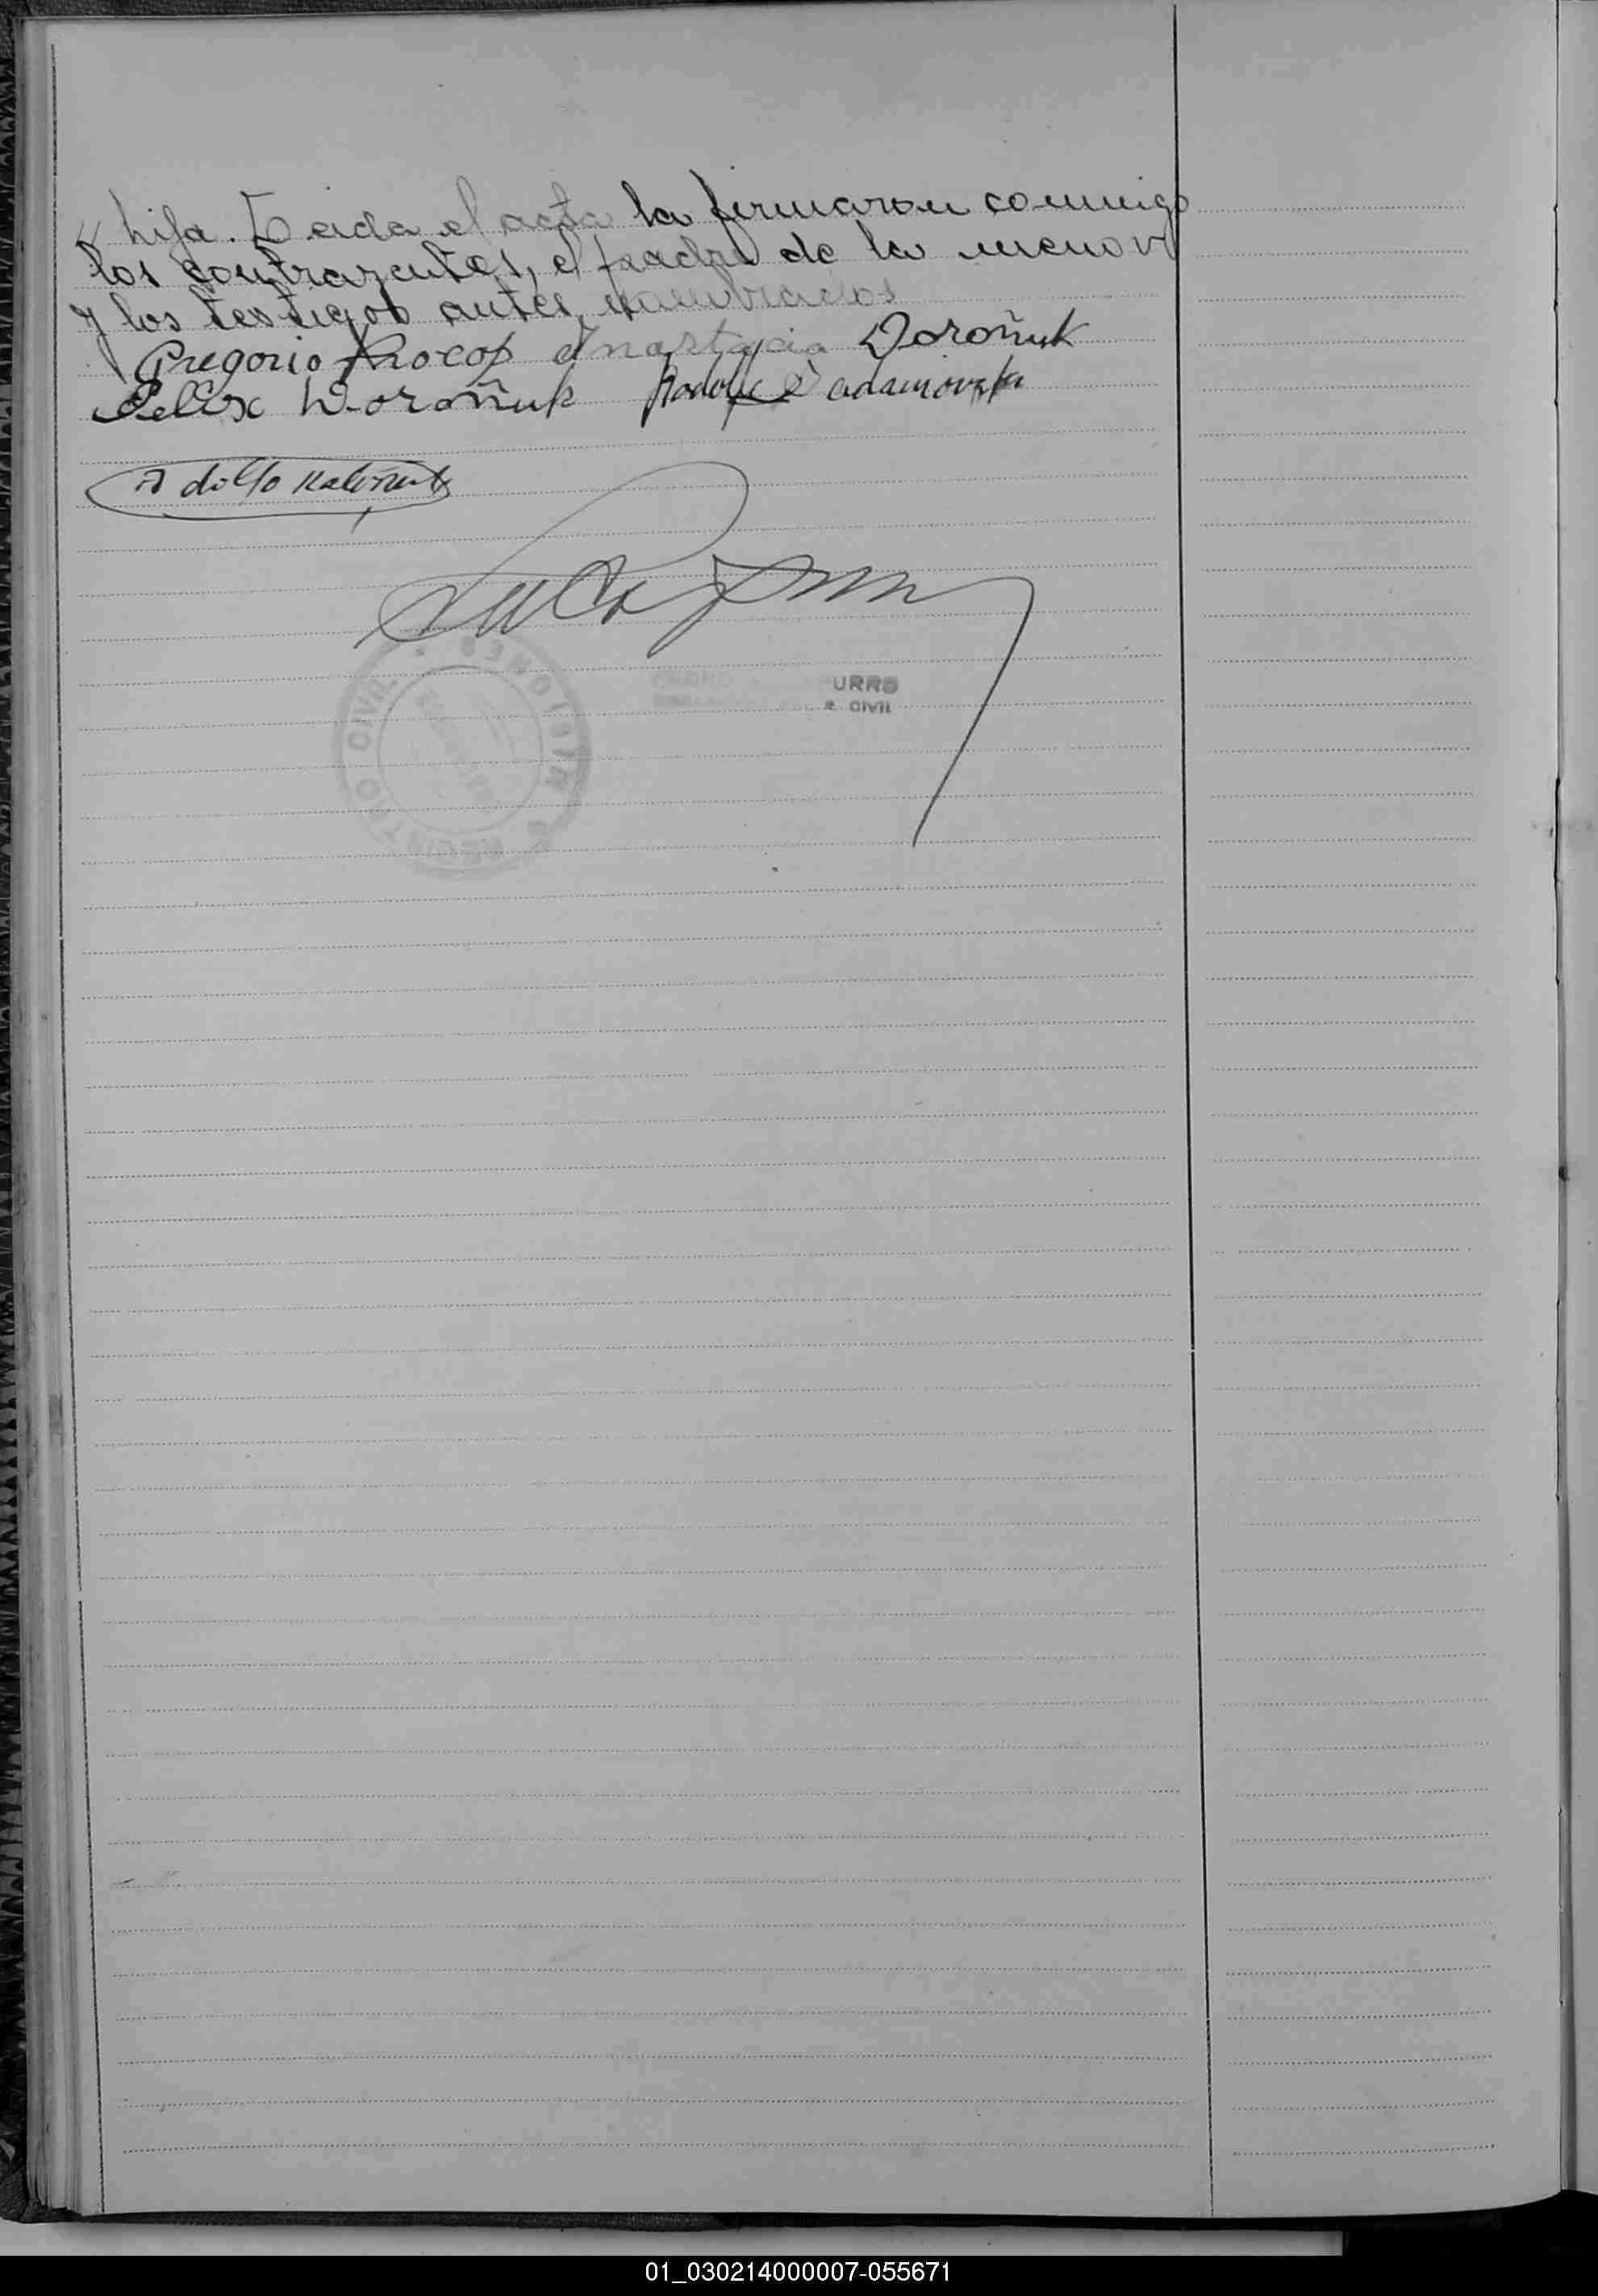 hija. Leida el acta la firmaron conmigo
los contrayentes, el padre de la menor
y los testigos antes nombrados
Gregorio Procop Anastacia Doroñuk
Felix Doroñuk Rodolfo
Adolfo
REGISTRO CIVIL
URRO
CIVIL
01_030214000007-055671